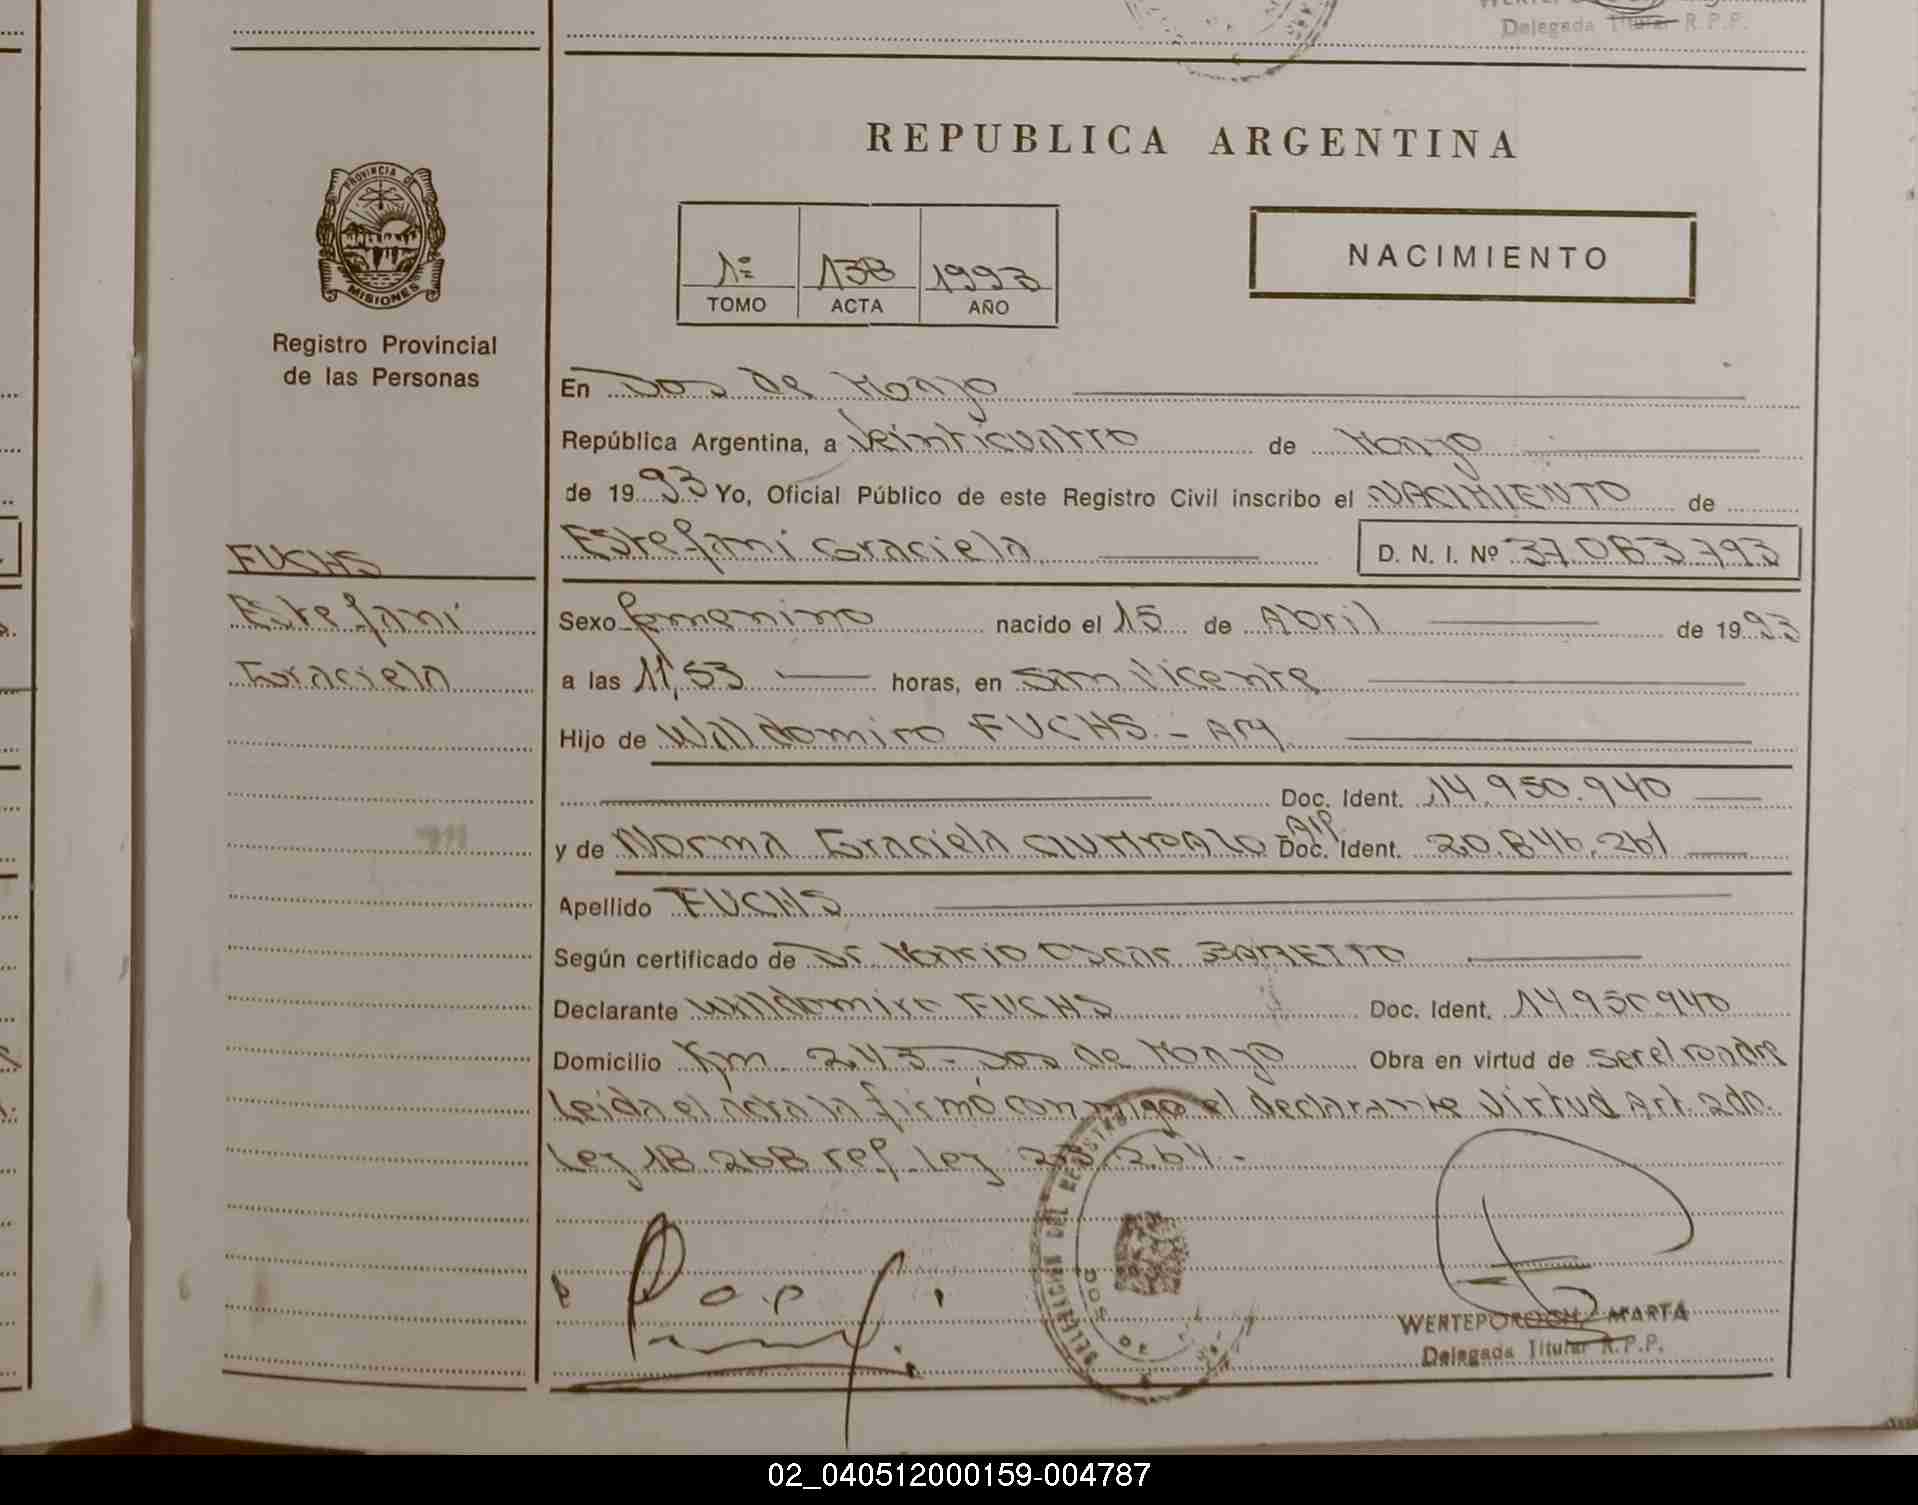 Delegada Titular R.P.P.
REPUBLICA ARGENTINA
PROVINCIA DE
MISIONES
Registro Provincial
de las Personas
1º 138 1993
TOMO ACTA AÑO
NACIMIENTO
En Dos de Mayo
República Argentina, a Veinticuatro de Mayo
de 1993 Yo, Oficial Público de este Registro Civil inscribo el NACIMIENTO de
Estefani Graciela D. N. I. Nº 37.083.793
FUCHS
Estefani
Graciela
Sexo femenino nacido el 15 de Abril de 1993
a las 11,53 horas, en San Vicente
Hijo de Walldomiro FUCHS.- Arg.
Doc. Ident. 14.950.940
y de Norma Graciela Arg. Doc. Ident. 20.846.261
Apellido FUCHS
Según certificado de Dr. Mario Oscar BARIETTO
Declarante Walldomiro FUCHS Doc. Ident. 14.950.940
Domicilio Km 243 - Dos de Mayo Obra en virtud de ser el padre
Leida el acta la firmó conmigo el declarante Virtud Art. 2do.
Ley 18.268 ref. Ley 23.264.-
DELEGACION DEL REGISTRO
DOS DE
WERTEPOROCH MARTA
Delegada Titular R.P.P.
02_040512000159-004787